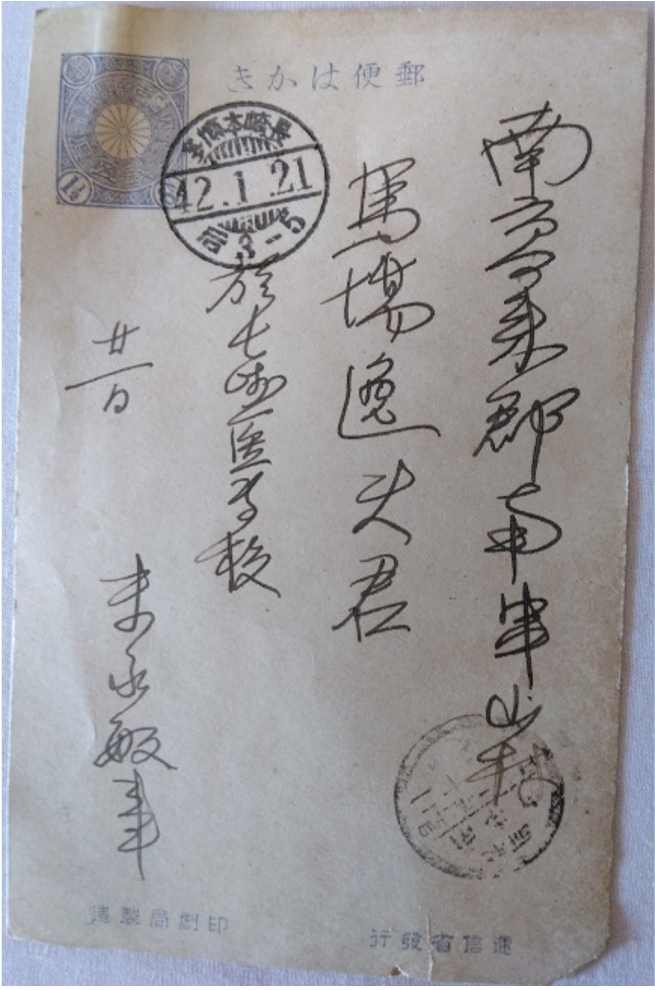 郵便はかき
1½
長崎本博多
42.1.21
3-5
南高来郡南串山村
馬場逸夫君
於長崎医学校
廿一日
末永敏事
印刷局製造
逓信省發行